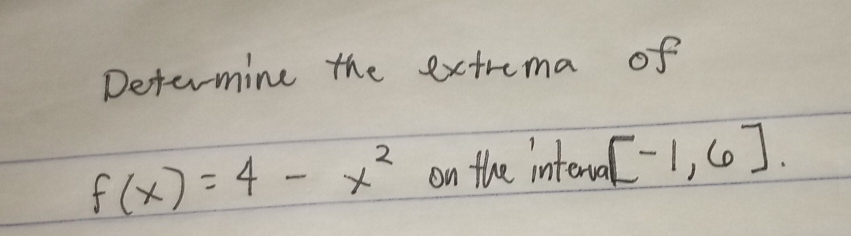 Determine the extrema of
f(x) = 4 - x² on the interval [-1, 6].